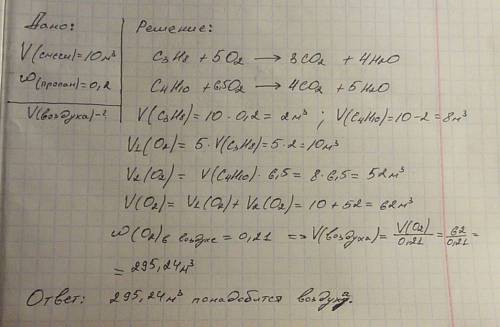 Дано:
V(смеси)=10 м³
ω(пропан)=0,2
V(воздуха)-?
Решение:
C3H8 + 5O2 → 3CO2 + 4H2O
C4H10 + 6,5O2 → 4CO2 + 5H2O
V(C3H8)= 10 · 0,2 = 2м³ ; V(C4H10)=10-2=8м³
V1(O2)= 5 · V(C3H8)= 5 · 2 = 10м³
V2(O2)= V(C4H10) · 6,5 = 8 · 6,5 = 52 м³
V(O2)= V1(O2) + V2(O2)= 10 + 52 = 62м³
ω(O2)в воздухе = 0,21 => V(воздуха)= V(O2)/0,21 = 62/0,21 =
= 295,24м³
Ответ: 295,24м³ понадобится воздуха.